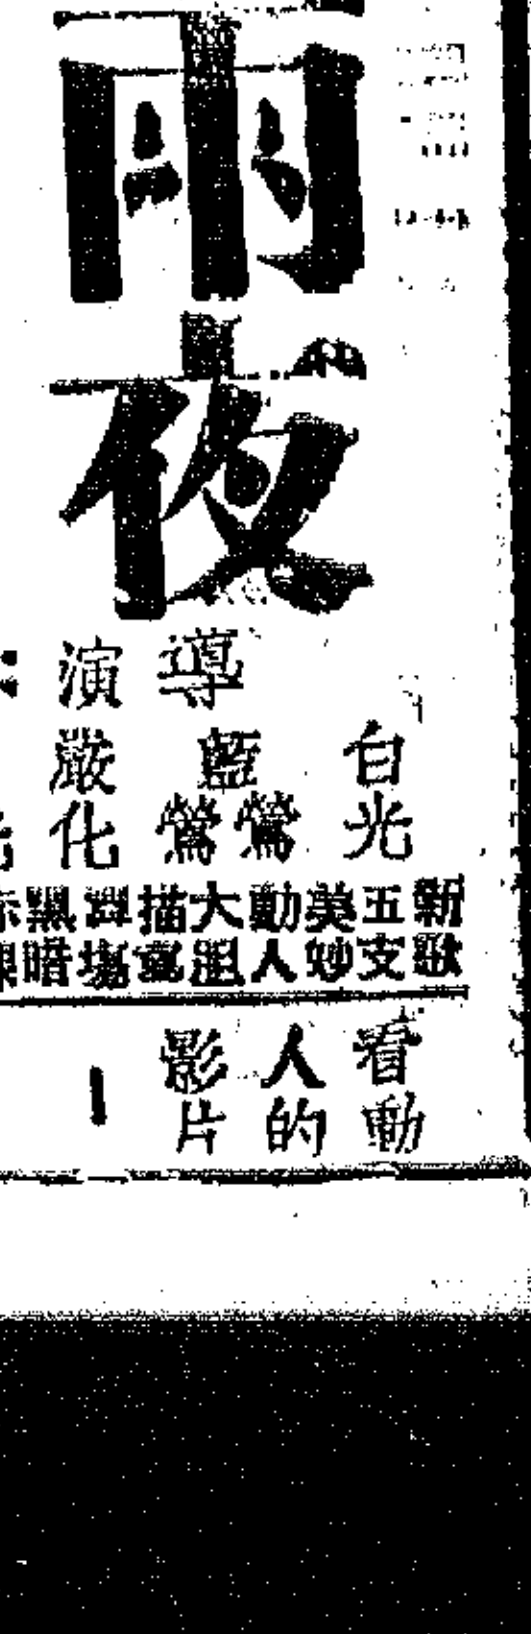 雨夜
導演:
白光
藍鶯鶯
嚴化
新歌
五支
美妙
動人
大胆
描寫
舞塲
黑暗
看動
人的
影片